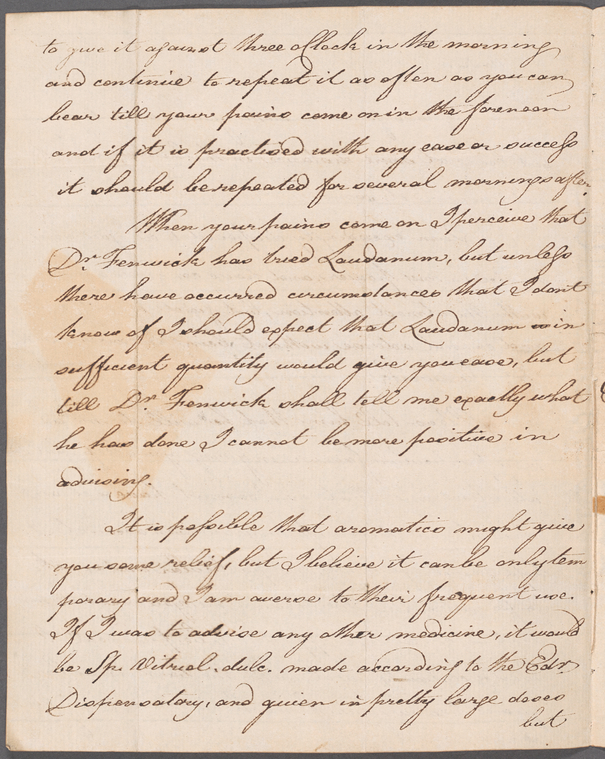 to give it against three oClock in the morning
and continue to repeat it as often as you can
bear till your pains come on in the forenoon
and if it is practised with any ease or success
it should be repeated for several mornings after.
When your pains come on I perceive that
Dr. Fenwick has tried Laudanum, but unless
there have occurred circumstances that I dont
know of I should expect that Laudanum in
sufficient quantity would give you ease, but
till Dr. Fenwick shall tell me exactly what
he has done I cannot be more positive in
advising.
It is possible that aromatics might give
you some relief, but I believe it can be only tem
porary and I am averse to their frequent use.
If I was to advise any other medicine, it would
be Sp. Vitriol. dulc. made according to the Edr.
Dispensatory, and given in pretty large doses
but